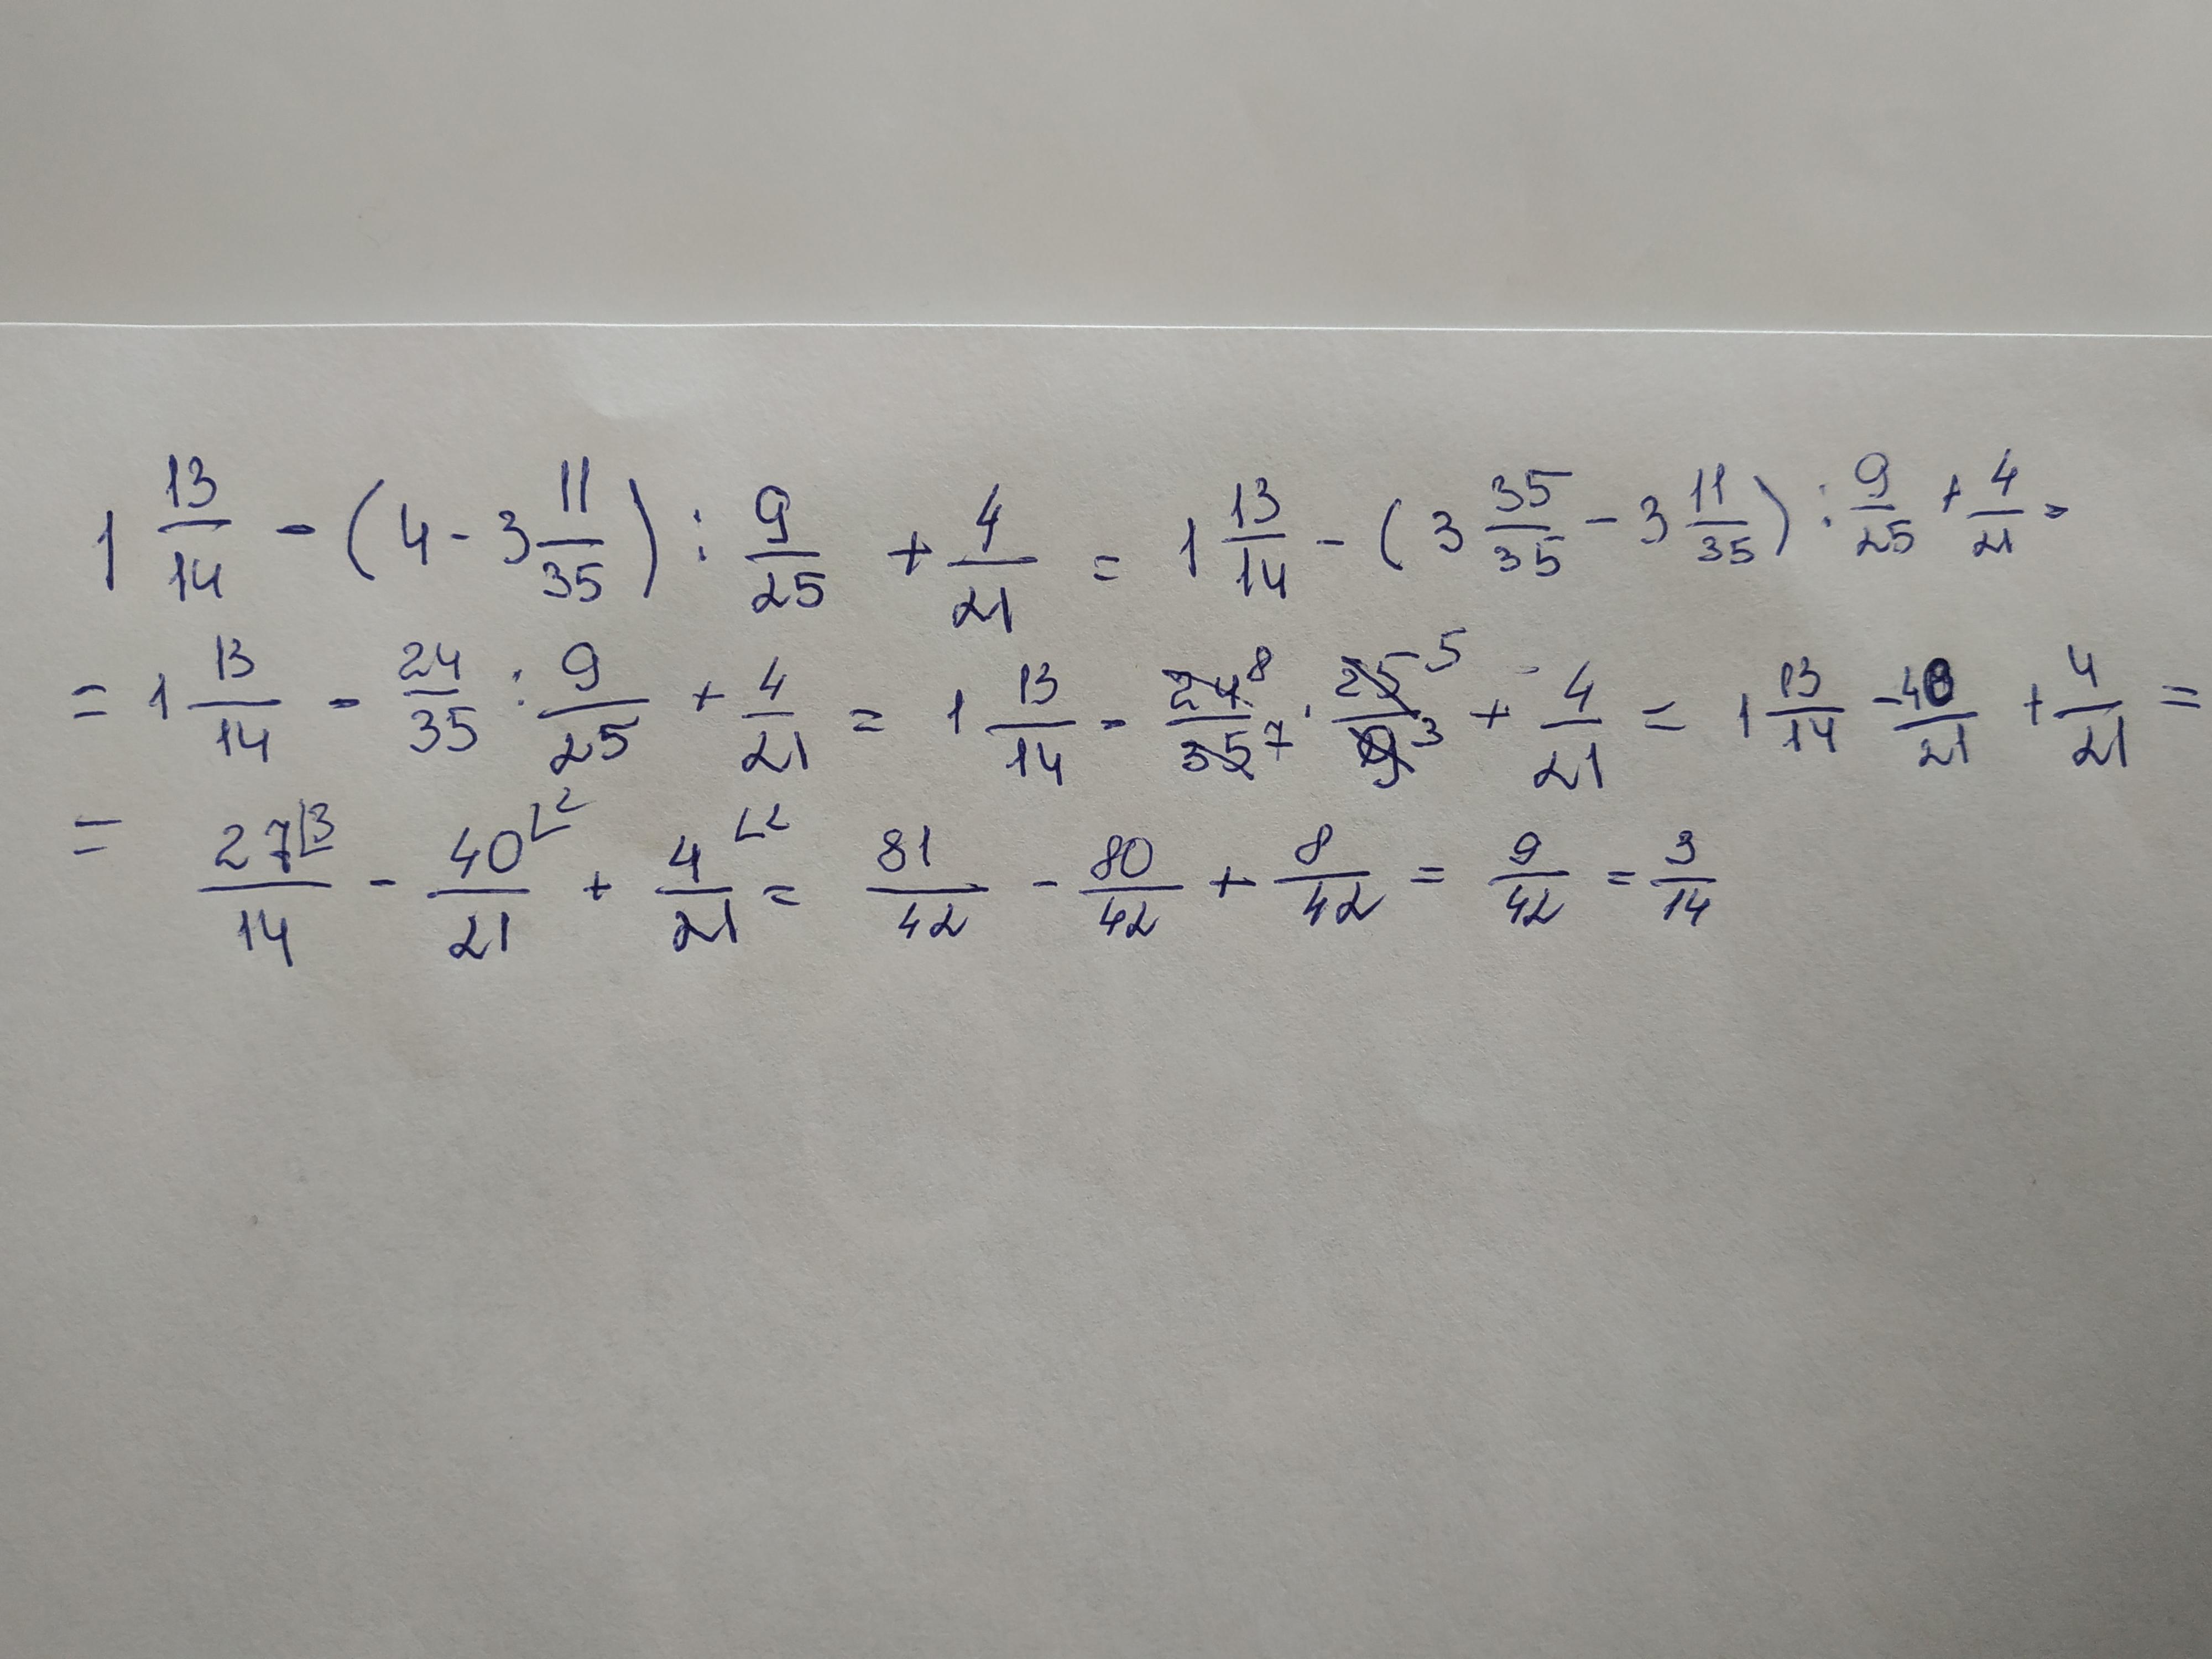 1 13/14 - (4 - 3 11/35) : 9/25 + 4/21 = 1 13/14 - (3 35/35 - 3 11/35) : 9/25 + 4/21 =
= 1 13/14 - 24/35 : 9/25 + 4/21 = 1 13/14 - 24 8/35 7 · 25 5/9 3 + 4/21 = 1 13/14 - 40/21 + 4/21 =
= 27 ⌊3/14 - 40 ⌊2/21 + 4 ⌊2/21 = 81/42 - 80/42 + 8/42 = 9/42 = 3/14